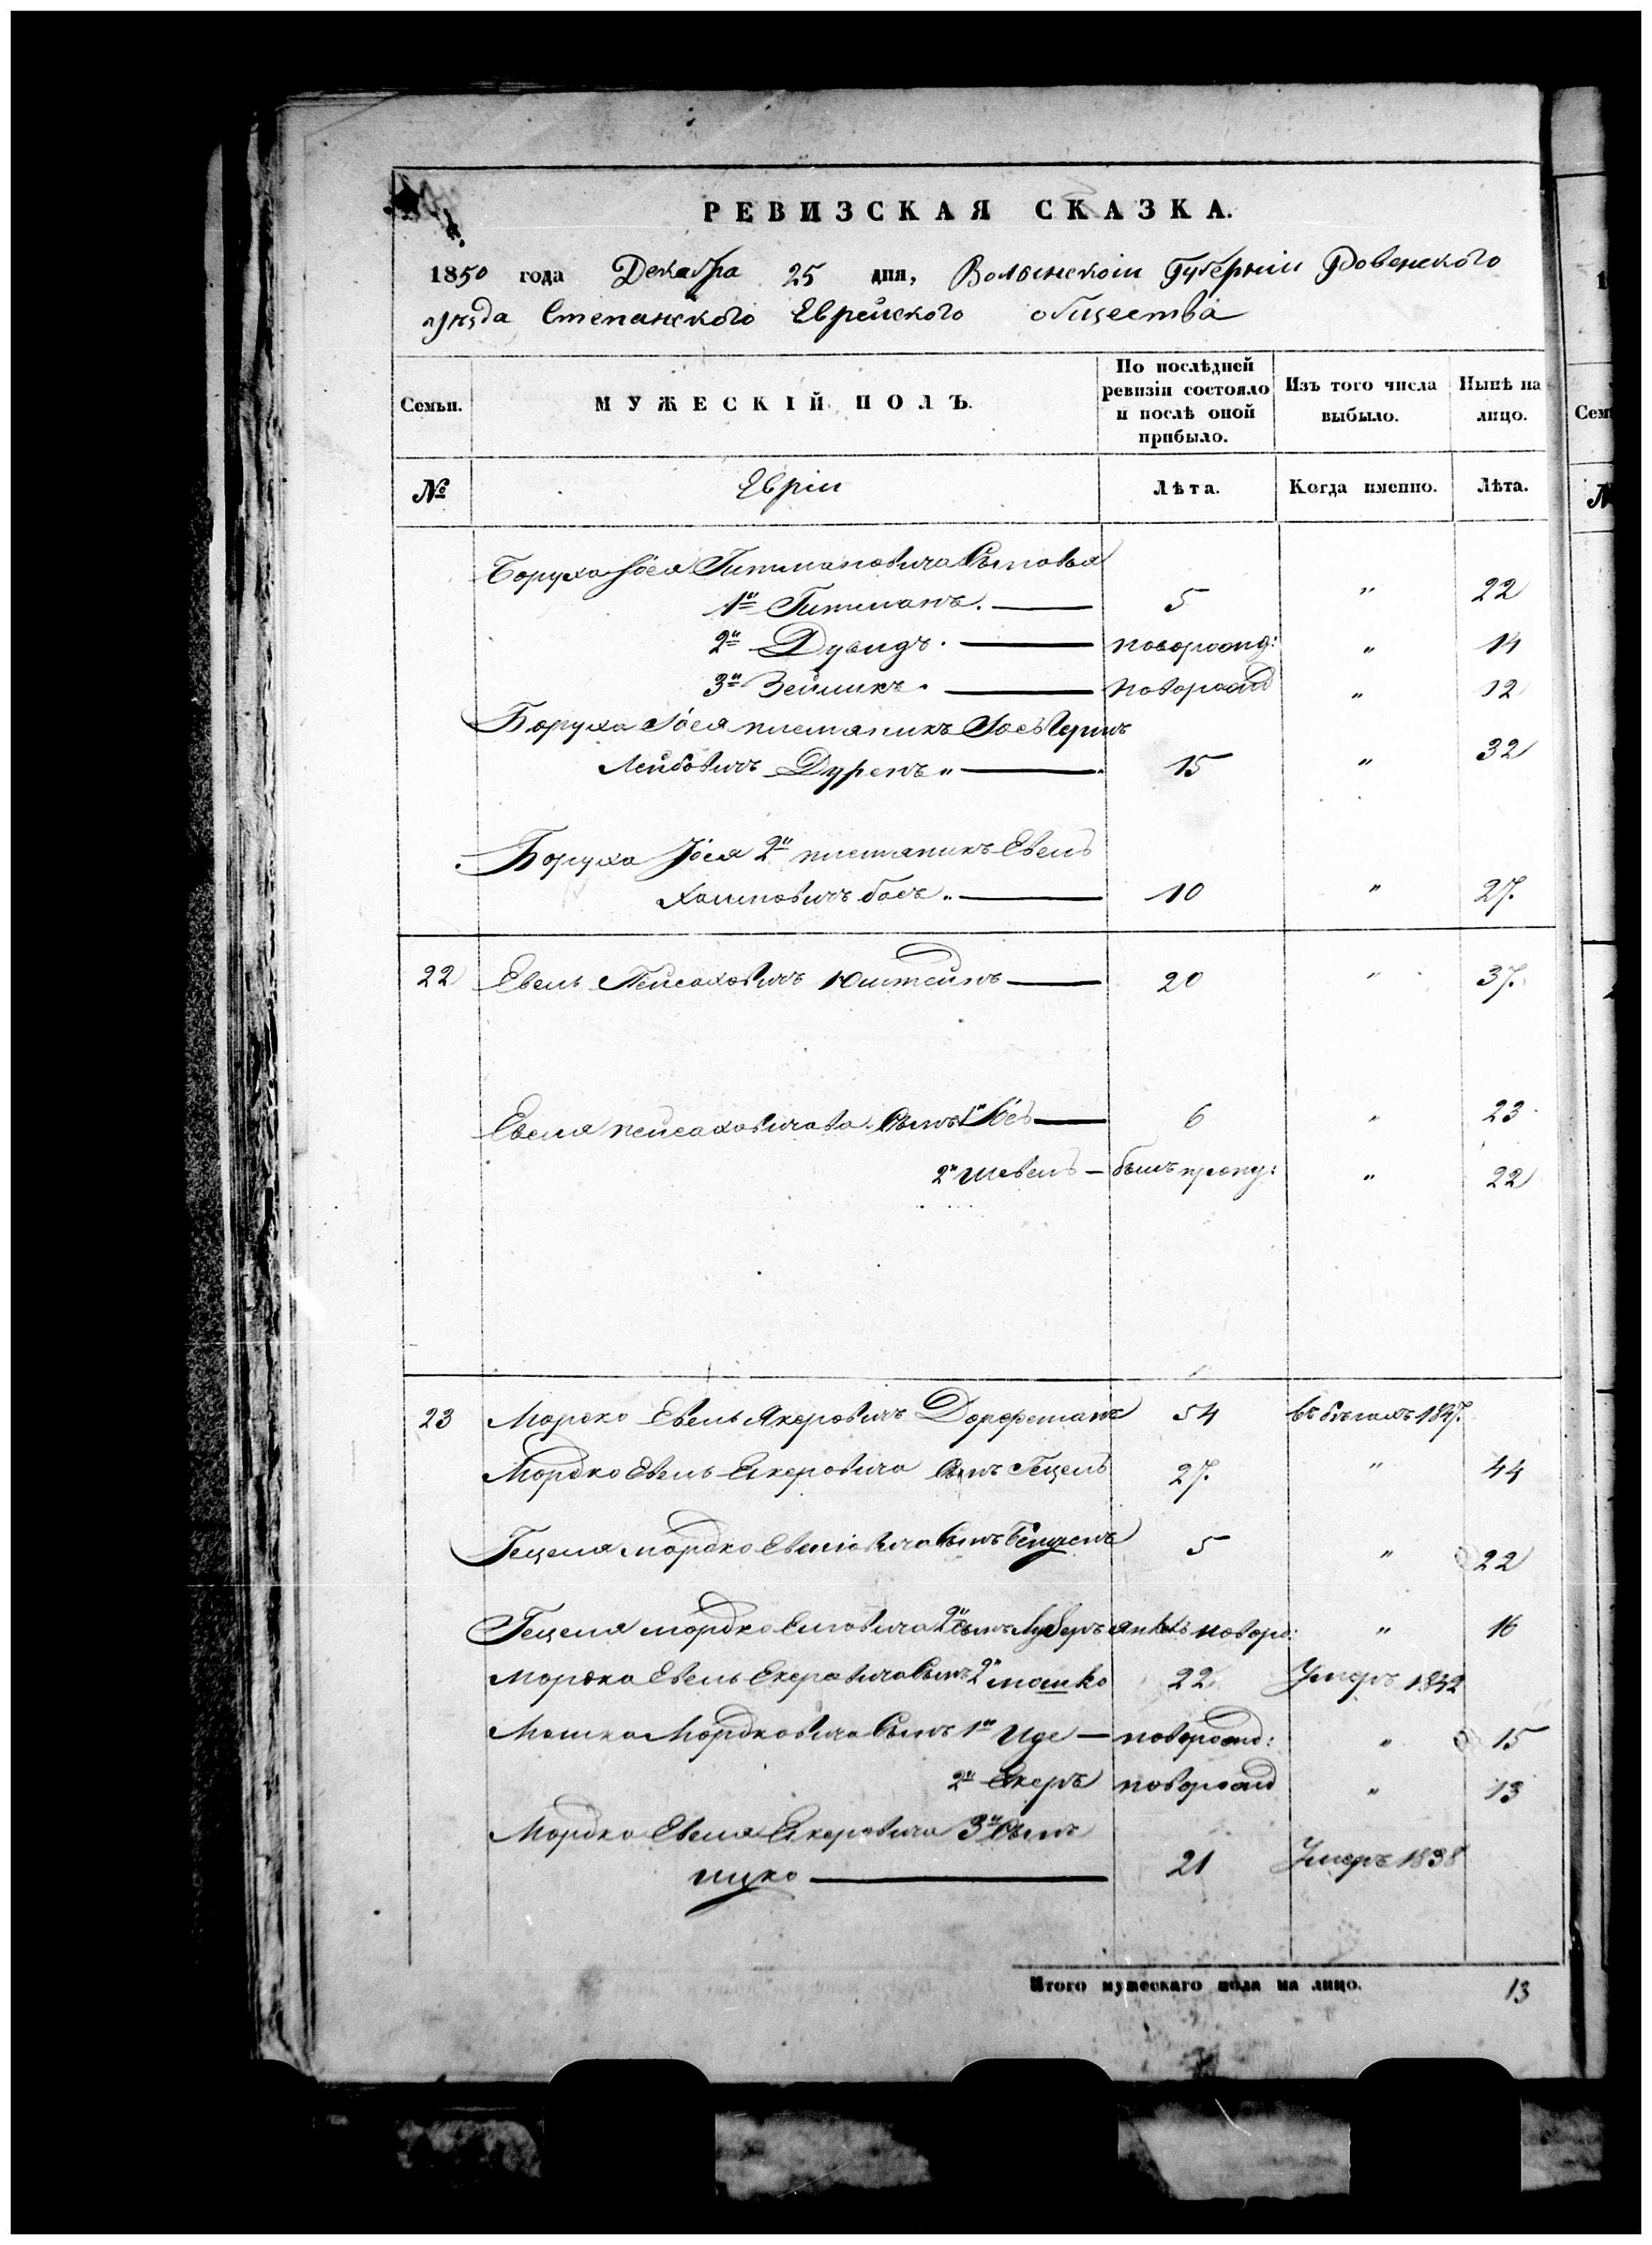 РЕВИЗСКАЯ СКАЗКА.
1850 года Декабра 25 дня, Волынской Губерніи Ровенского
уѣзда Степанского Еврейского общества
Семьи. МУЖЕСКІЙ ПОЛЪ. По послѣдней ревизіи состояло и послѣ оной прибыло. Изъ того числа выбыло. Нынѣ на лицо.
№ Евреи Лѣта. Когда именно. Лѣта.
Боруха Іося Гитмановича Сыновья
1й Гитманъ. 5 " 22
2й Дувидъ. новорожд: " 14
3й Зейликъ. новорожд " 12
Боруха Іося племяникъ Іось
Лейбовичъ Дуренъ " 15 " 32
Боруха Іося 2й племяникъ Евель
Хаимовичъ 10 " 27.
22 Евель Пейсаховичъ 20 " 37.
Евеля Пейсаховича Сынъ 1й Іось 6 " 23
2й Шевель былъ пропу: " 22
23 Мордко Евель Якеровичъ Дорфманъ 54 въ бѣгахъ 1847.
Мордко Евель Екеровича Сынъ Гецель 27. " 44
Гецеля Мордко Сынъ 5 " 22
Гецеля Мордко 2й Сынъ новоро: " 16
Мордко Евель Екеровича Сынъ 2й Мошко 22 Умеръ 1842
Мошка Мордковича Сынъ 1й новорожд: " 15
2й Екеръ новорожд " 13
Мордко Евеля Екеровича 3й Сынъ
Ицко 21 Умеръ 1838
Итого мужескаго пола на лицо. 13